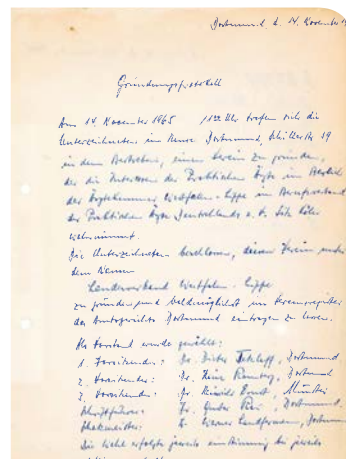 Dortmund d. 14. November
Gründungsprotokoll
Am 14. November 1965 Uhr trafen sich die
Unterzeichneten im Hause Dortmund, 19
in dem Bestreben, einen Verein zu gründen,
der die Interessen der Praktischen Ärzte im Bereich
der Ärztekammer Westfalen-Lippe im Berufsverband
der Praktischen Ärzte Deutschlands e.V. Sitz Köln
wahrnimmt.
Die Unterzeichneten beschlossen, diesen Verein unter
dem Namen
Landesverband Westfalen-Lippe
zu gründen und baldmöglichst im Vereinsregister
des Amtsgerichts Dortmund eintragen zu lassen.
Als Vorstand wurde gewählt:
1. Vorsitzender: Dr. Dieter , Dortmund
2. Vorsitzender: Dr. Heinz , Dortmund
3. Vorsitzender: Dr. Ernst, Münster
Schriftführer: Dr. Günter , Dortmund
Schatzmeister: Dr. Werner , Dortmun
Die Wahl erfolgte jeweils einstimmig bei jeweils